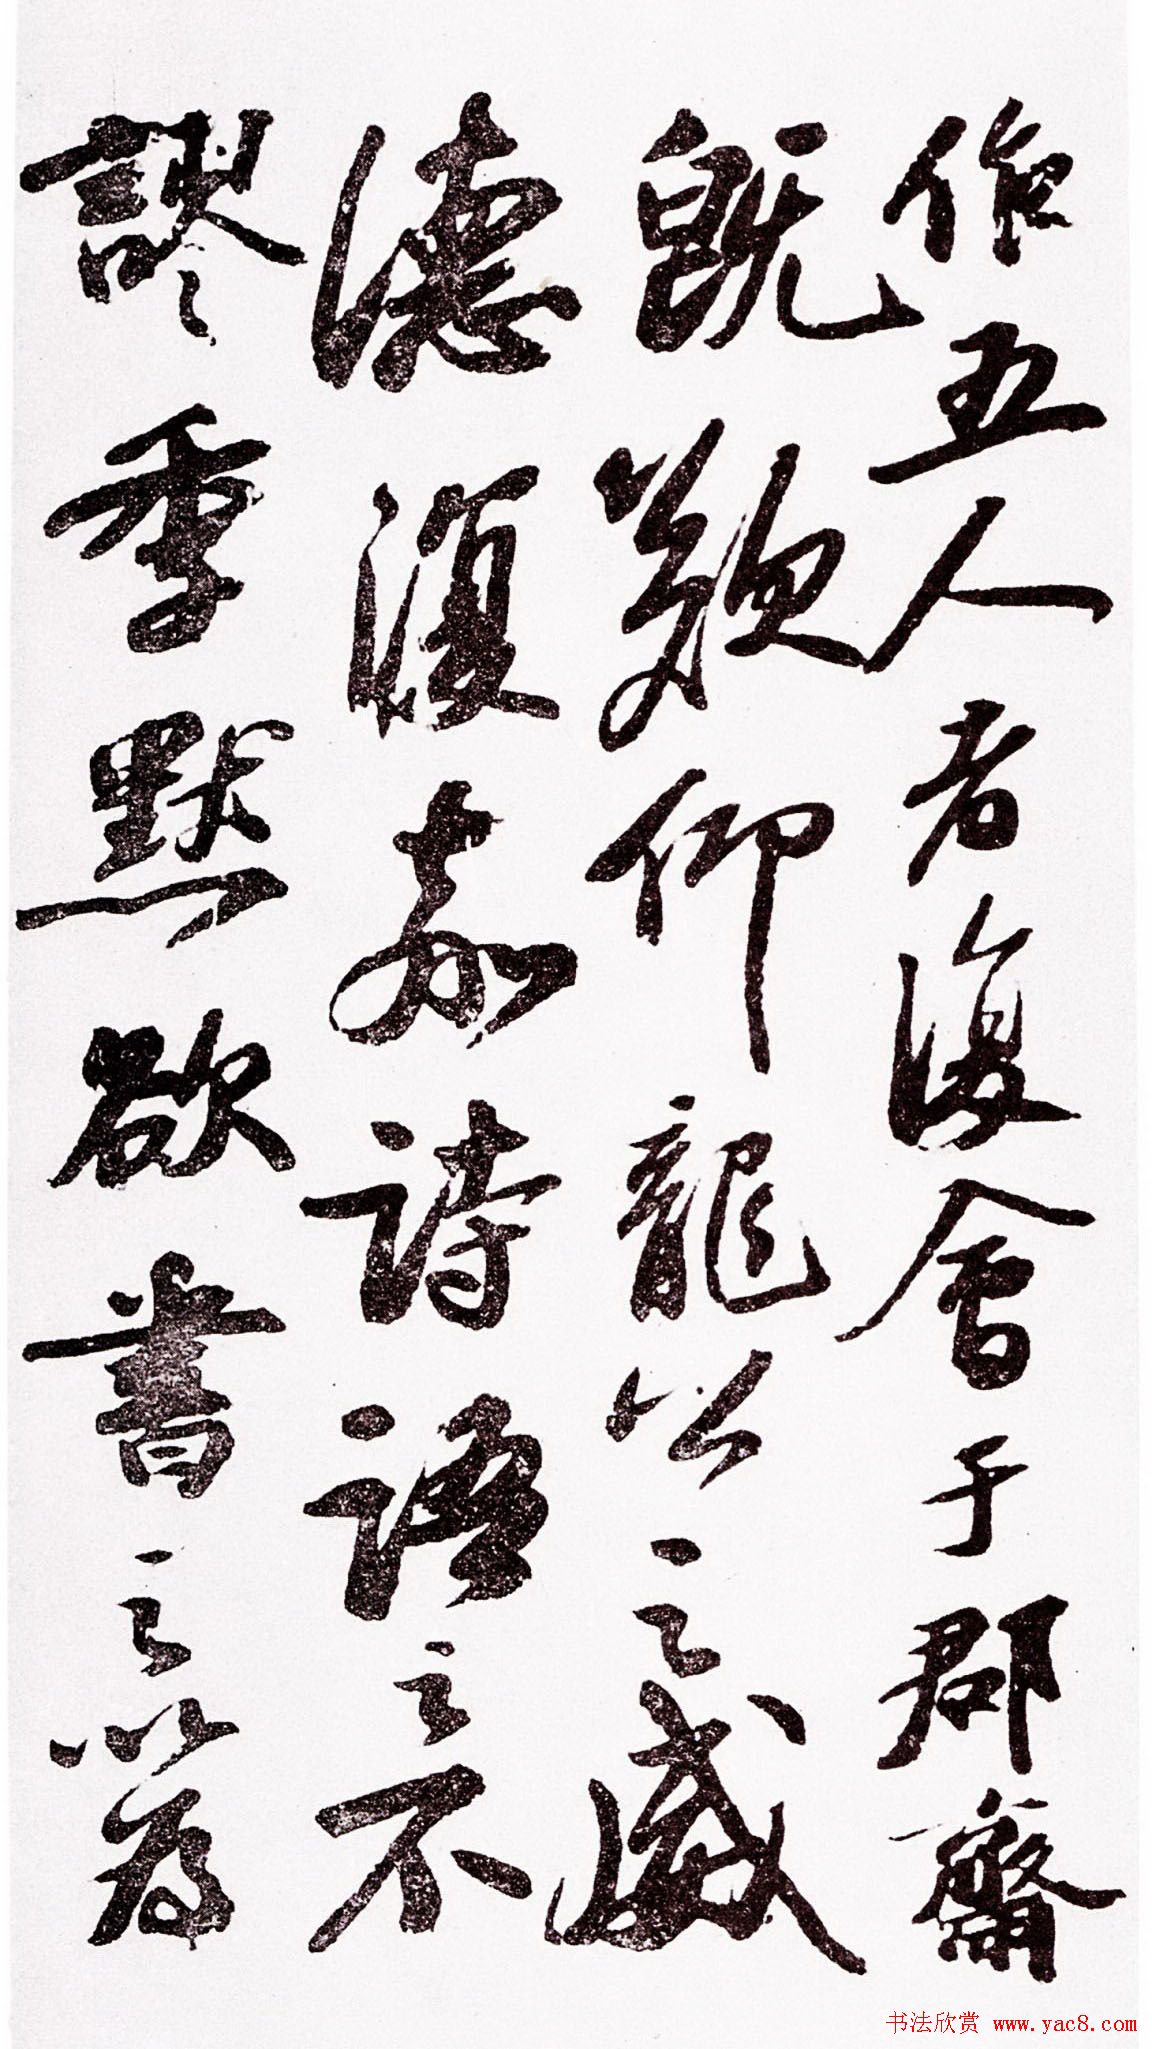 作五人者復會于郡齋
既歎仰龍公之威
德復嘉詩語之不
謬季默欲書之以爲
书法欣赏 www.yac8.com